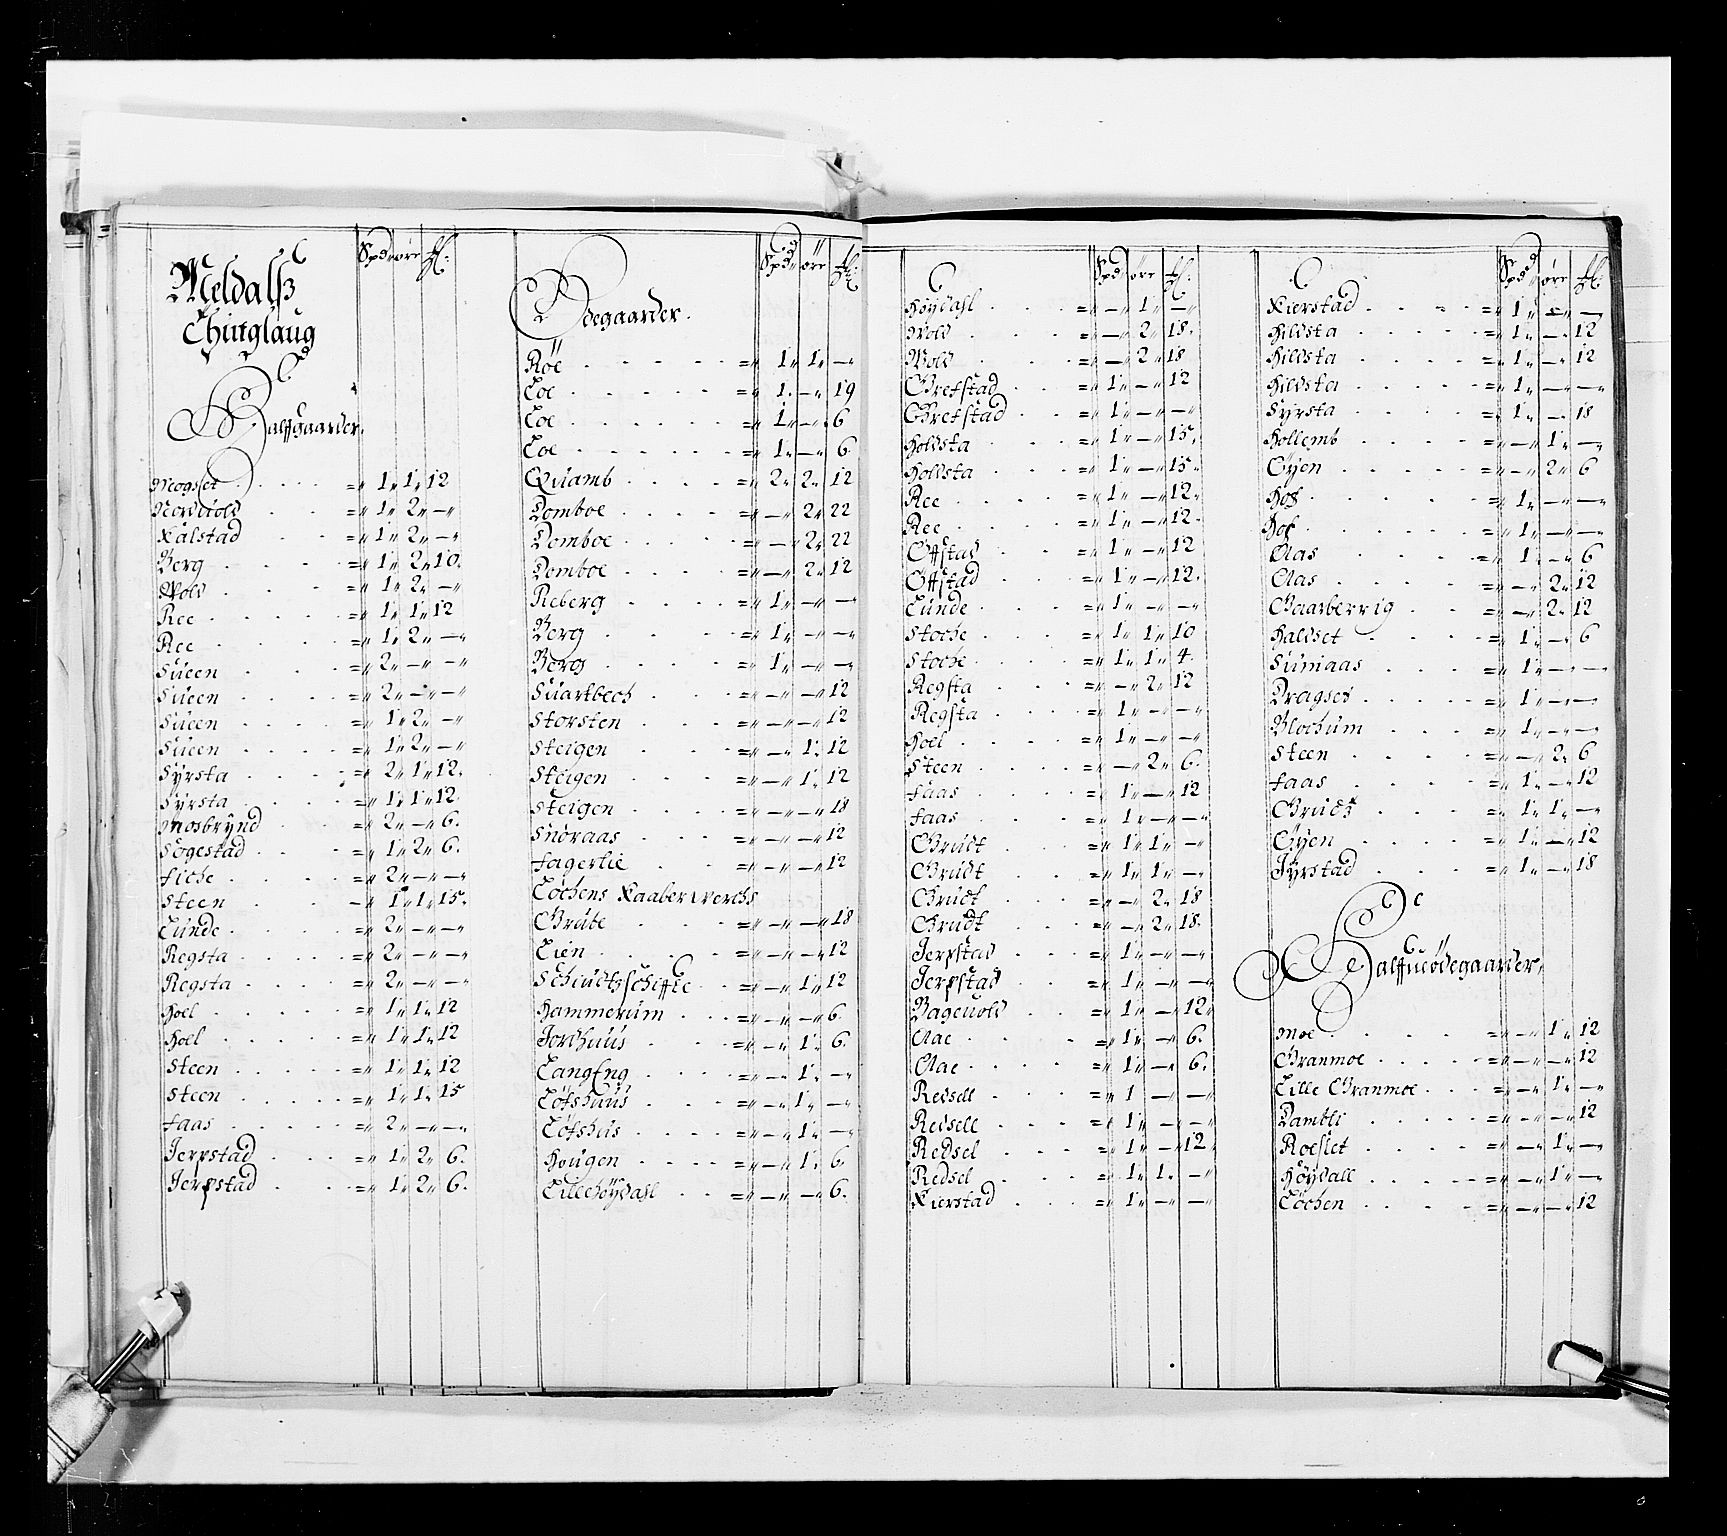 Spd øre
Meldalß
Thinglaug
Halffgaarder.
Mogset = 1 1 12
Nordvold = 1 2 —
Kalstad = 1 2 —
Berg = 1 2 10.
Wold = 1 2 —
Ree = 1 1 12
Ree = 1 2 —
Sueen = 2 — —
Sueen = 2 — —
Sueen = 1 2 —
Sueen = 1 2 —
Syrsta = 2 1 12.
Syrsta = 1 1 12
Mosbrynd = 2 — 6.
Sogestad = 1 2 6.
Fiche = 2 — —
Steen = 1 1 15.
Lunde = 2 — —
Regsta = 2 — —
Regsta = 2 — —
Hoel = 1 1 12
Hoel = 1 1 12
Steen = 1 1 12
Steen = 1 1 15
Faas = 2 — —
Jerpstad = 1 2 6.
Jerpstad = 1 2 6.
Spd øre
Ødegaarder.
Røe = 1 1 —
Loe = 1 — 19
Loe = 1 — 6
Loe = 1 — 6
Quamb = 2 2 12
Domboe = — 2 22
Domboe = — 2 22
Domboe = — 2 12
Reberg = 1 — —
Berg = 1 — —
Berg = 1 — —
Suartbech = — — 12
Storsten = — — 12
Steigen = — 1 12
Steigen = — 1 12
Steigen = — — 18
Snoraas = — — 12
Fagerlie = — — 12
Løchens Kaaberwerchs
Grube = — — 18
Lien = — — 12
Schiudtzschiffte = — 1 12
Hammerum = — — 6.
Jordhuus = — 1 6.
LangEng = — 1 —
Løfshuus = — 1 —
Løfshus = — 1 —
Hougen = — 1 6.
Lillehøydahl = — — 6.
Spd øre
Høydahl = — 1 —
Wold = — 2 18.
Wold = — 2 18
Grefstad = 1 — 12
Grefstad = 1 — —
Holdsta = 1 — 15.
Holdsta = 1 — 15.
Ree = 1 — 12.
Ree = 1 — 12.
Offstad = 1 — 12
Offstad = 1 — 12.
Lunde = 1 — —
Stoche = 1 1 10
Stoche = 1 1 4.
Regsta = — 2 12
Regsta = 1 — —
Hoel = 1 — —
Steen = — 2 6.
Faas = 1 — 12
Faas = 1 — —
Grudt = 1 1 —
Grudt = 1 1 —
Grudt = — 2 18
Grudt = — 2 18.
Jerpstad = 1 — —
Jerpstad = 1 — —
Bageuold = 1 — 12
Aae = 1 — 6.
Aae = 1 — 6.
Redsell = 1 — —
Redsell = 1 — —
Redsel = 1 — 12
Redsel = 1 1. —
Kierstad = 1 — —
Spd øre
Kierstad = 1 — —
Hildsta = 1 — 12
Hildsta = 1 — 12
Hildsta = 1 — —
Syrsta = 1 — 18
Hollemb = — 1 —
Øyen = — 2 6
Hof = 1 — —
Hof = 1 — —
Aas = 1 — 6
Aas = — 2 12
Gaarberrig = — 2 12
Haldset = 1 — 6
Sumaas = 1 — —
Dragset = 1 — —
Blochum = 1 — —
Steen = — 2 6
Faas = 1 — 12
Grudt = 1 1 —
Øyen = 1 — 12
Jyrstad = 1 — 18
Halffueødegaarder.
Moe = — 1 12
Granmoe = — — 12
Lille Granmoe = — 1 —
Dambli = — — 12
Roeslet = — 1 —
Høydall = — 1 —
Løchen = — — 12